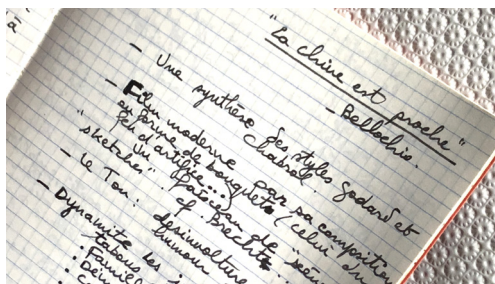 à
"La chine est proche"
- Bellochio.
- Une synthèse des styles godard et
Chabrol.
- Film moderne par sa composition
en forme de bouquet (celui d'un
feu d'artifice...)
Un faisceau de scèn
"sketches". cf. Brecht...
- Le Ton : desinvolture
humour
- Dynamite les
tabous
: Famil